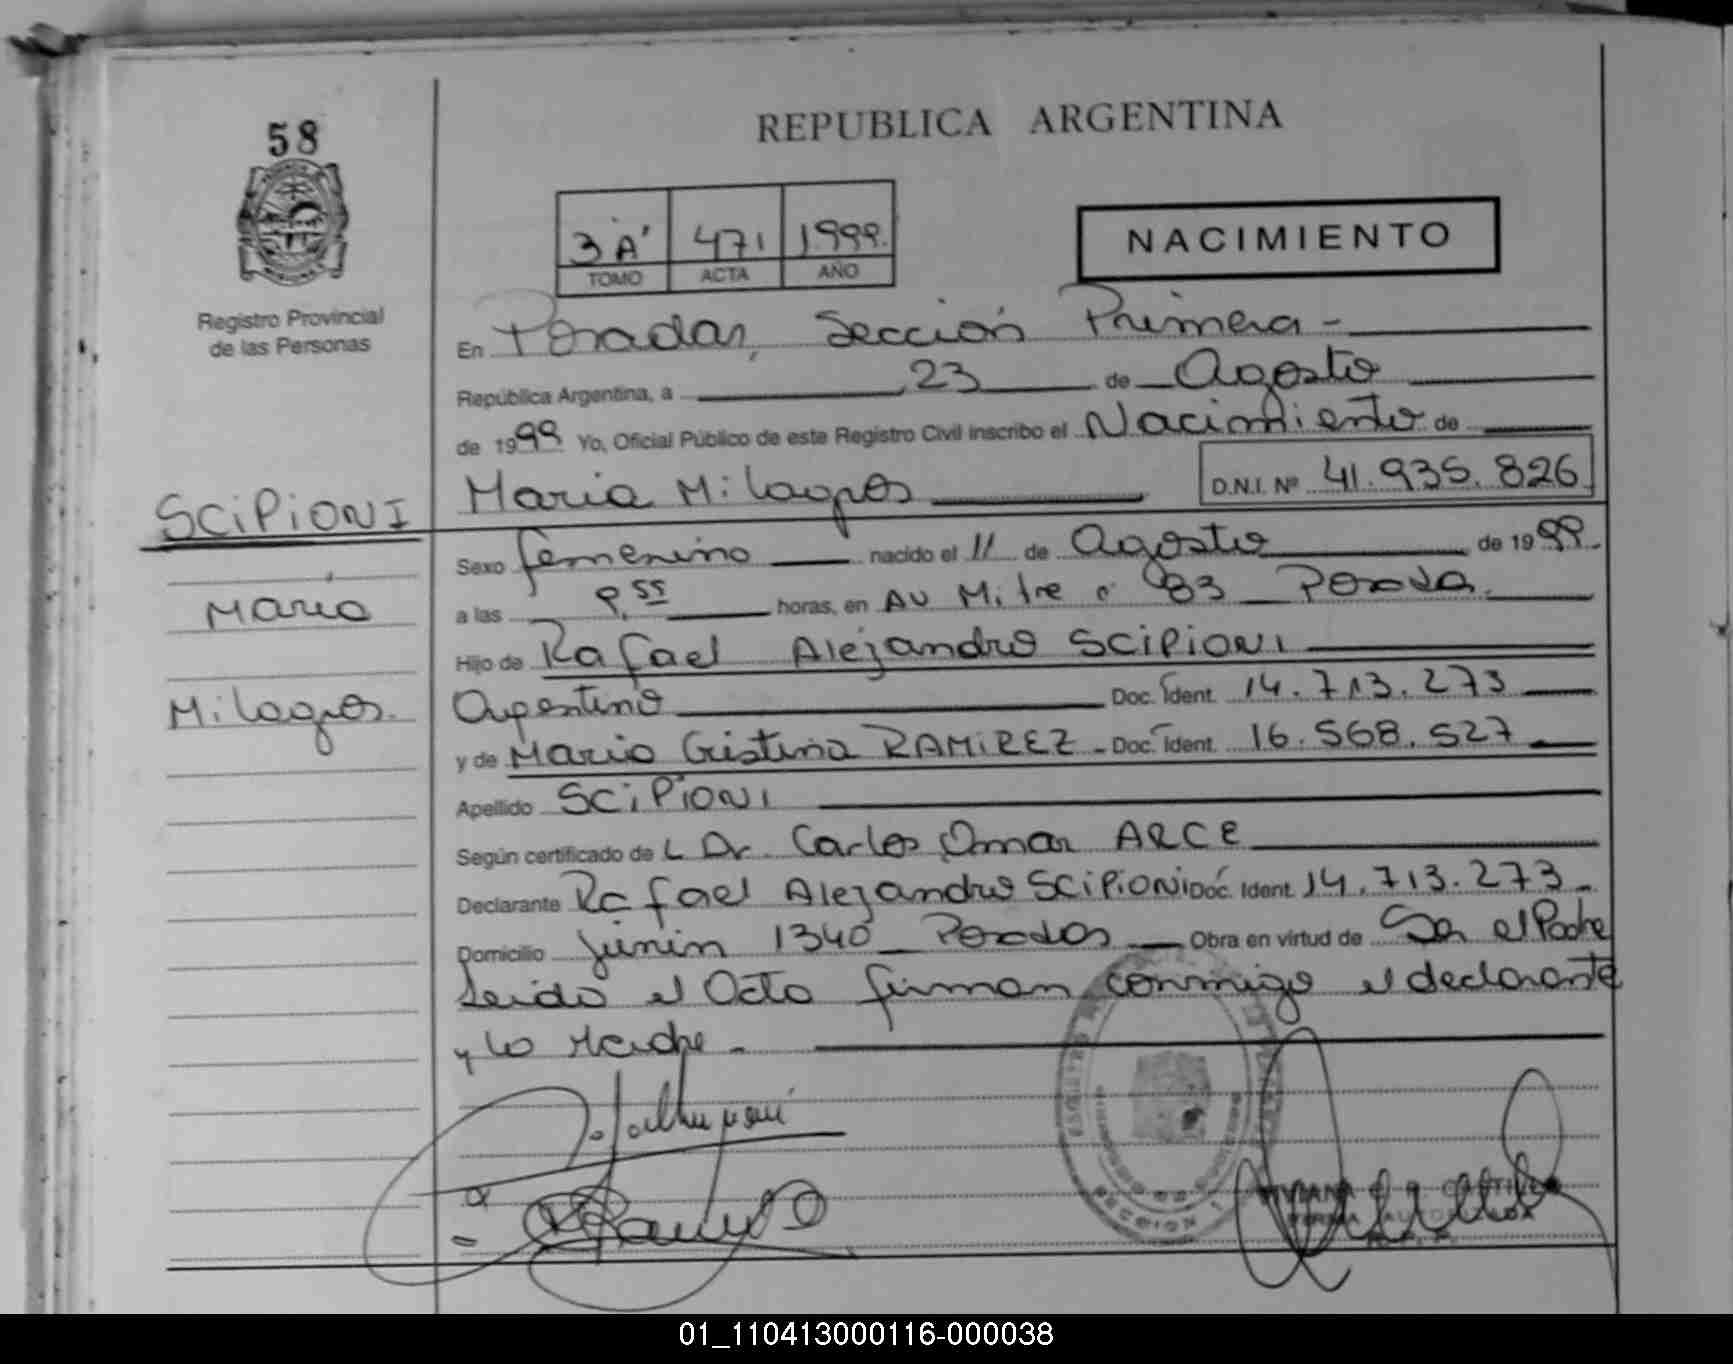 58
REPUBLICA ARGENTINA
3 A' 471 1999.
TOMO ACTA AÑO
NACIMIENTO
Registro Provincial
de las Personas
En Posadas, Sección Primera -
República Argentina, a 23 de Agosto
de 1999 Yo, Oficial Público de este Registro Civil inscribo el Nacimiento de
SCIPIONI
Maria Milagros D.N.I. Nº 41.935.826
Sexo femenino nacido el 11 de Agosto de 1999.
Maria
a las 9,55 horas, en AV Mitre 83 Posadas.
Hijo de Rafael Alejandro SCIPIONI
Milagros.
Argentino Doc. Ident. 14.713.273
y de Maria Cristina RAMIREZ - Doc. Ident. 16.568.527
Apellido SCIPIONI
Según certificado de L Dr. Carlos Omar ARCE
Declarante Rafael Alejandro SCIPIONI Doc. Ident. 14.713.273 -
Domicilio Junin 1340 Posadas Obra en virtud de Ser el Padre
Leido el Acta firman conmigo el declarante
y la Madre -
SECCION 1
01_110413000116-000038